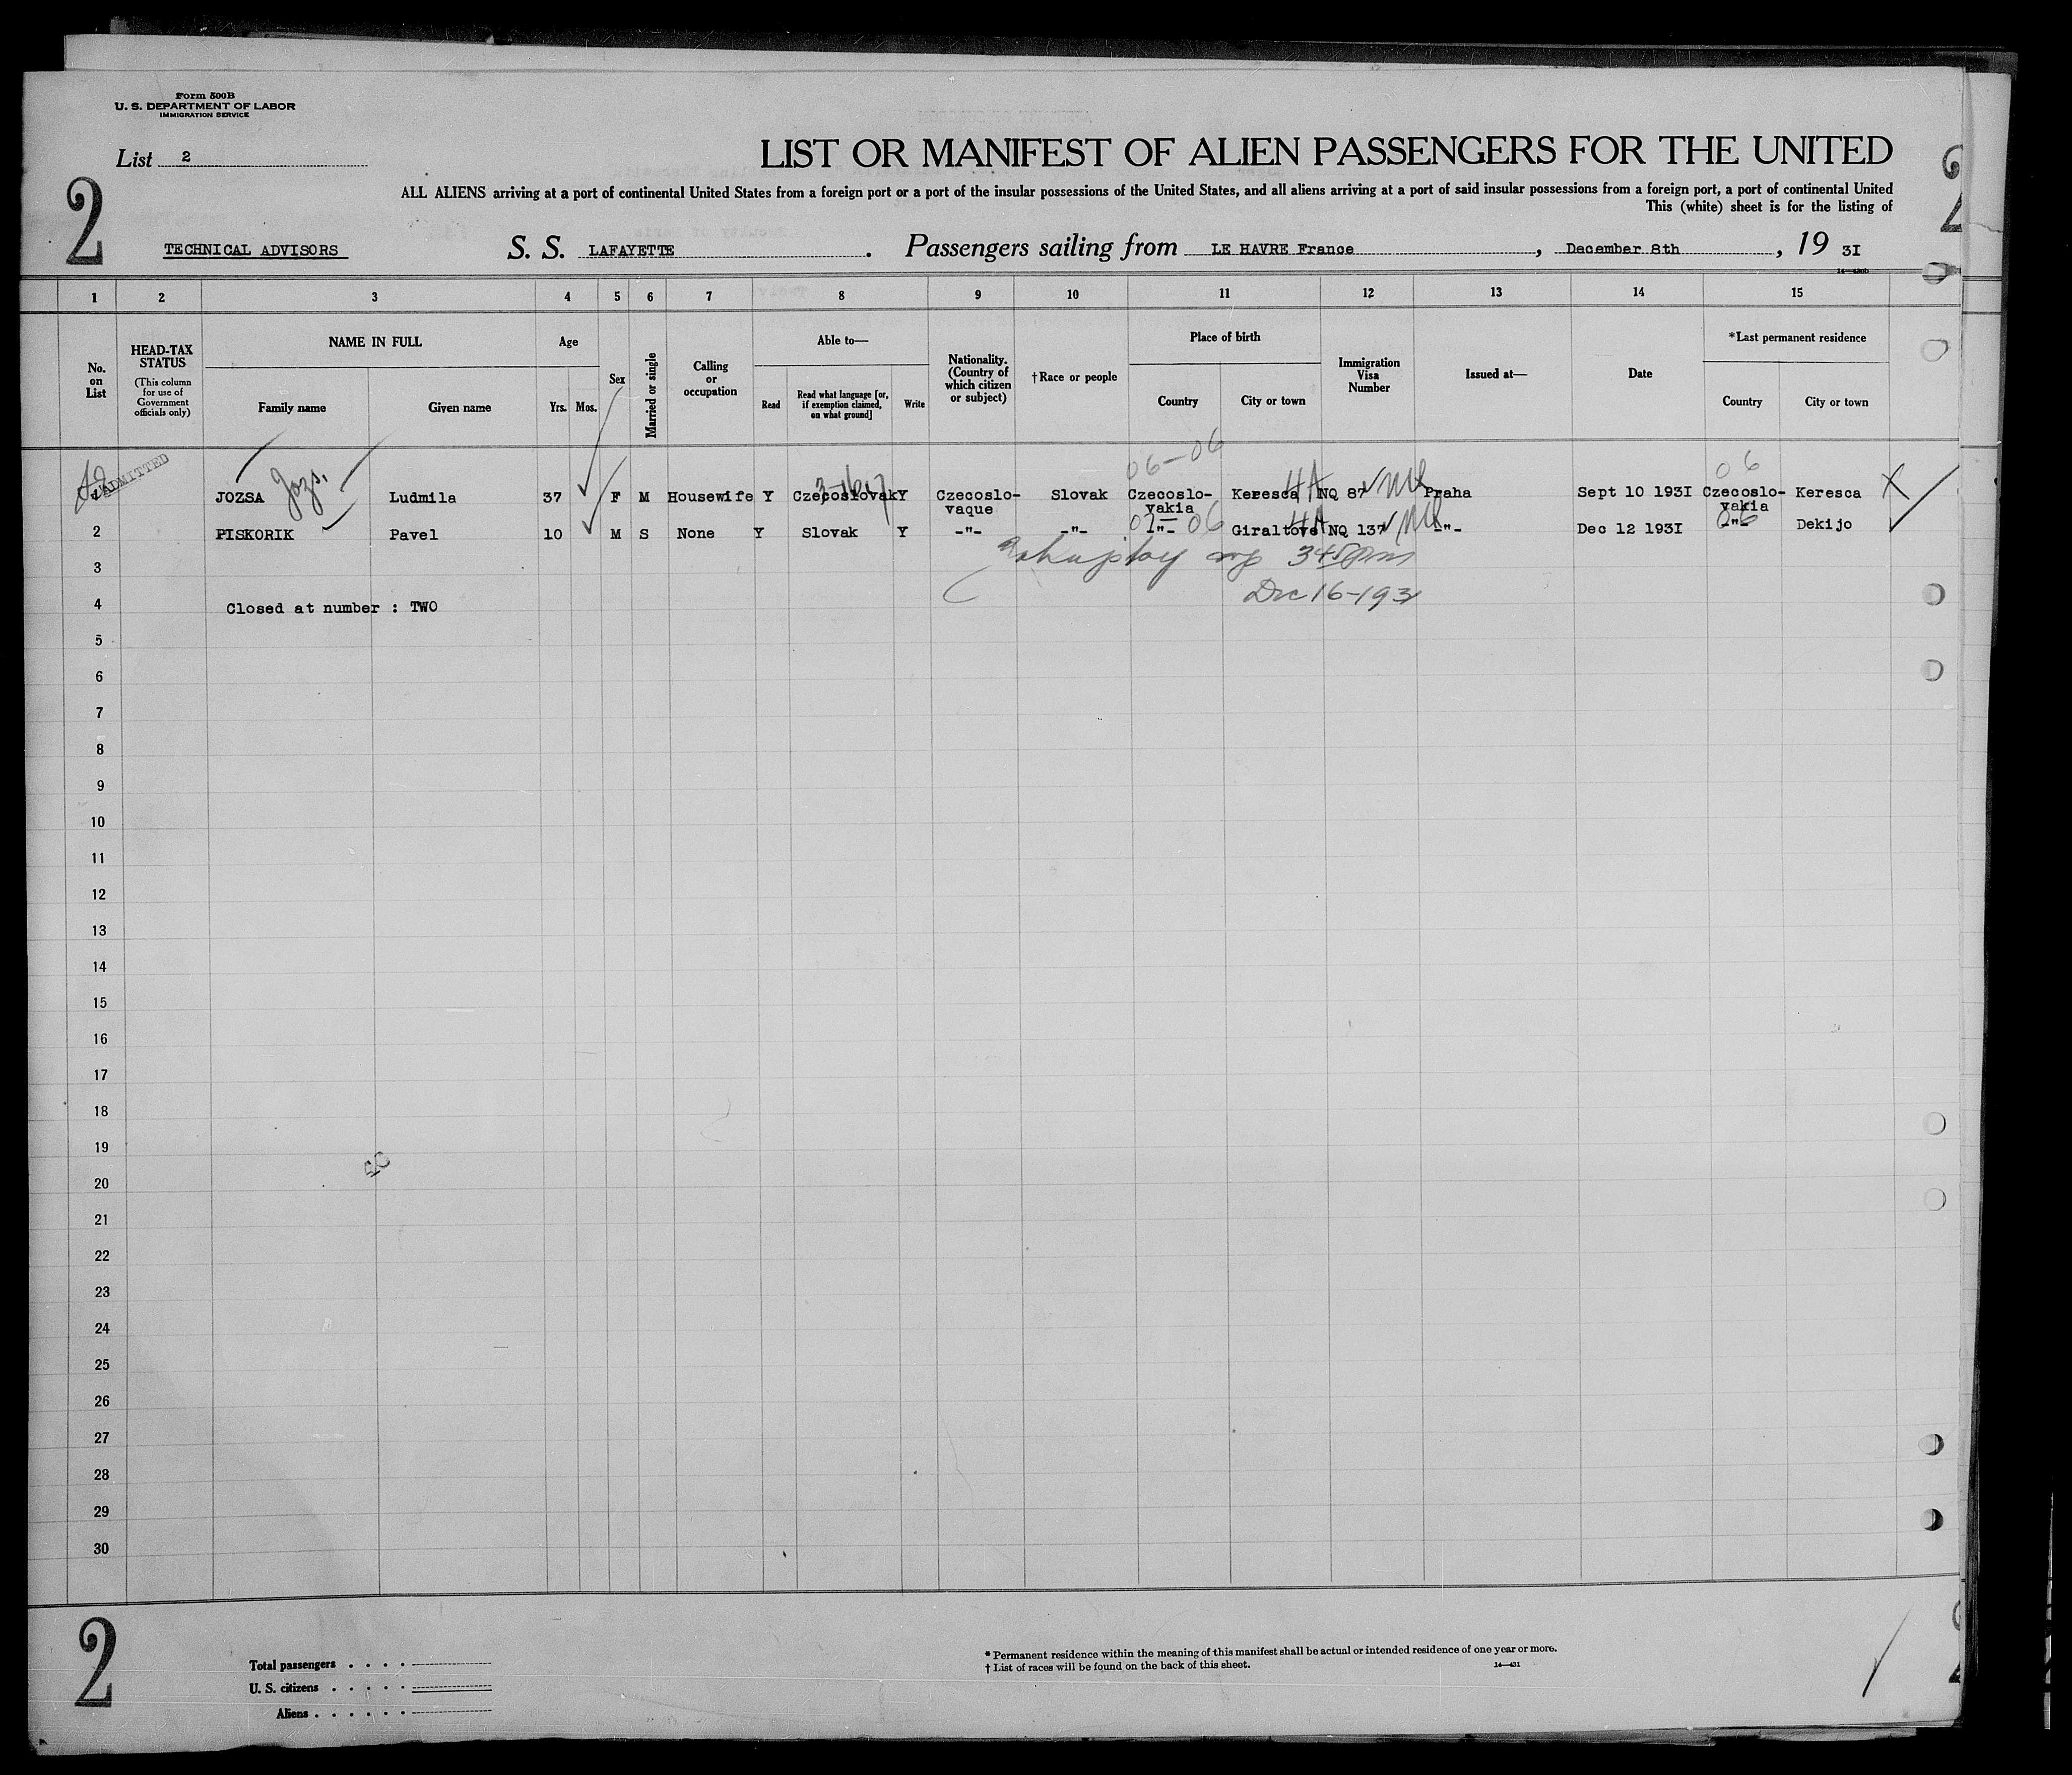 Form 500B
U. S. DEPARTMENT OF LABOR
IMMIGRATION SERVICE
List 2
LIST OR MANIFEST OF ALIEN PASSENGERS FOR THE UNITED
ALL ALIENS arriving at a port of continental United States from a foreign port or a port of the insular possessions of the United States, and all aliens arriving at a port of said insular possessions from a foreign port, a port of continental United
This (white) sheet is for the listing of
2
TECHNICAL ADVISORS S. S. LAFAYETTE . Passengers sailing from LE HAVRE France , December 8th , 19 3I
1 2 3 4 5 6 7 8 9 10 11 12 13 14 15
No. on List
HEAD-TAX STATUS
(This column for use of Government officials only)
NAME IN FULL
Family name Given name
Age
Yrs. Mos.
Sex
Married or single
Calling or occupation
Able to—
Read
Read what language [or, if exemption claimed, on what ground]
Write
Nationality. (Country of which citizen or subject)
†Race or people
Place of birth
Country City or town
Immigration Visa Number
Issued at—
Date
*Last permanent residence
Country City or town
06-06 06
ADMITTED
1 JOZSA Jozs. Ludmila 37 F M Housewife Y Czecoslovak Y Czecoslo-vaque Slovak Czecoslo-vakia Keresca NQ 87 Praha Sept 10 193I Czecoslo-vakia Keresca
2 PISKORIK Pavel 10 M S None Y Slovak Y -"- -"- -"- Giraltove NQ 137 -"- Dec 12 193I -"- Dekijo
3
Dec 16-193
4 Closed at number : TWO
5
6
7
8
9
10
11
12
13
14
15
16
17
18
19
20
21
22
23
24
25
26
27
28
29
30
2
Total passengers . . . .
U. S. citizens . . . . .
Aliens . . . . . .
* Permanent residence within the meaning of this manifest shall be actual or intended residence of one year or more.
† List of races will be found on the back of this sheet.
14—431